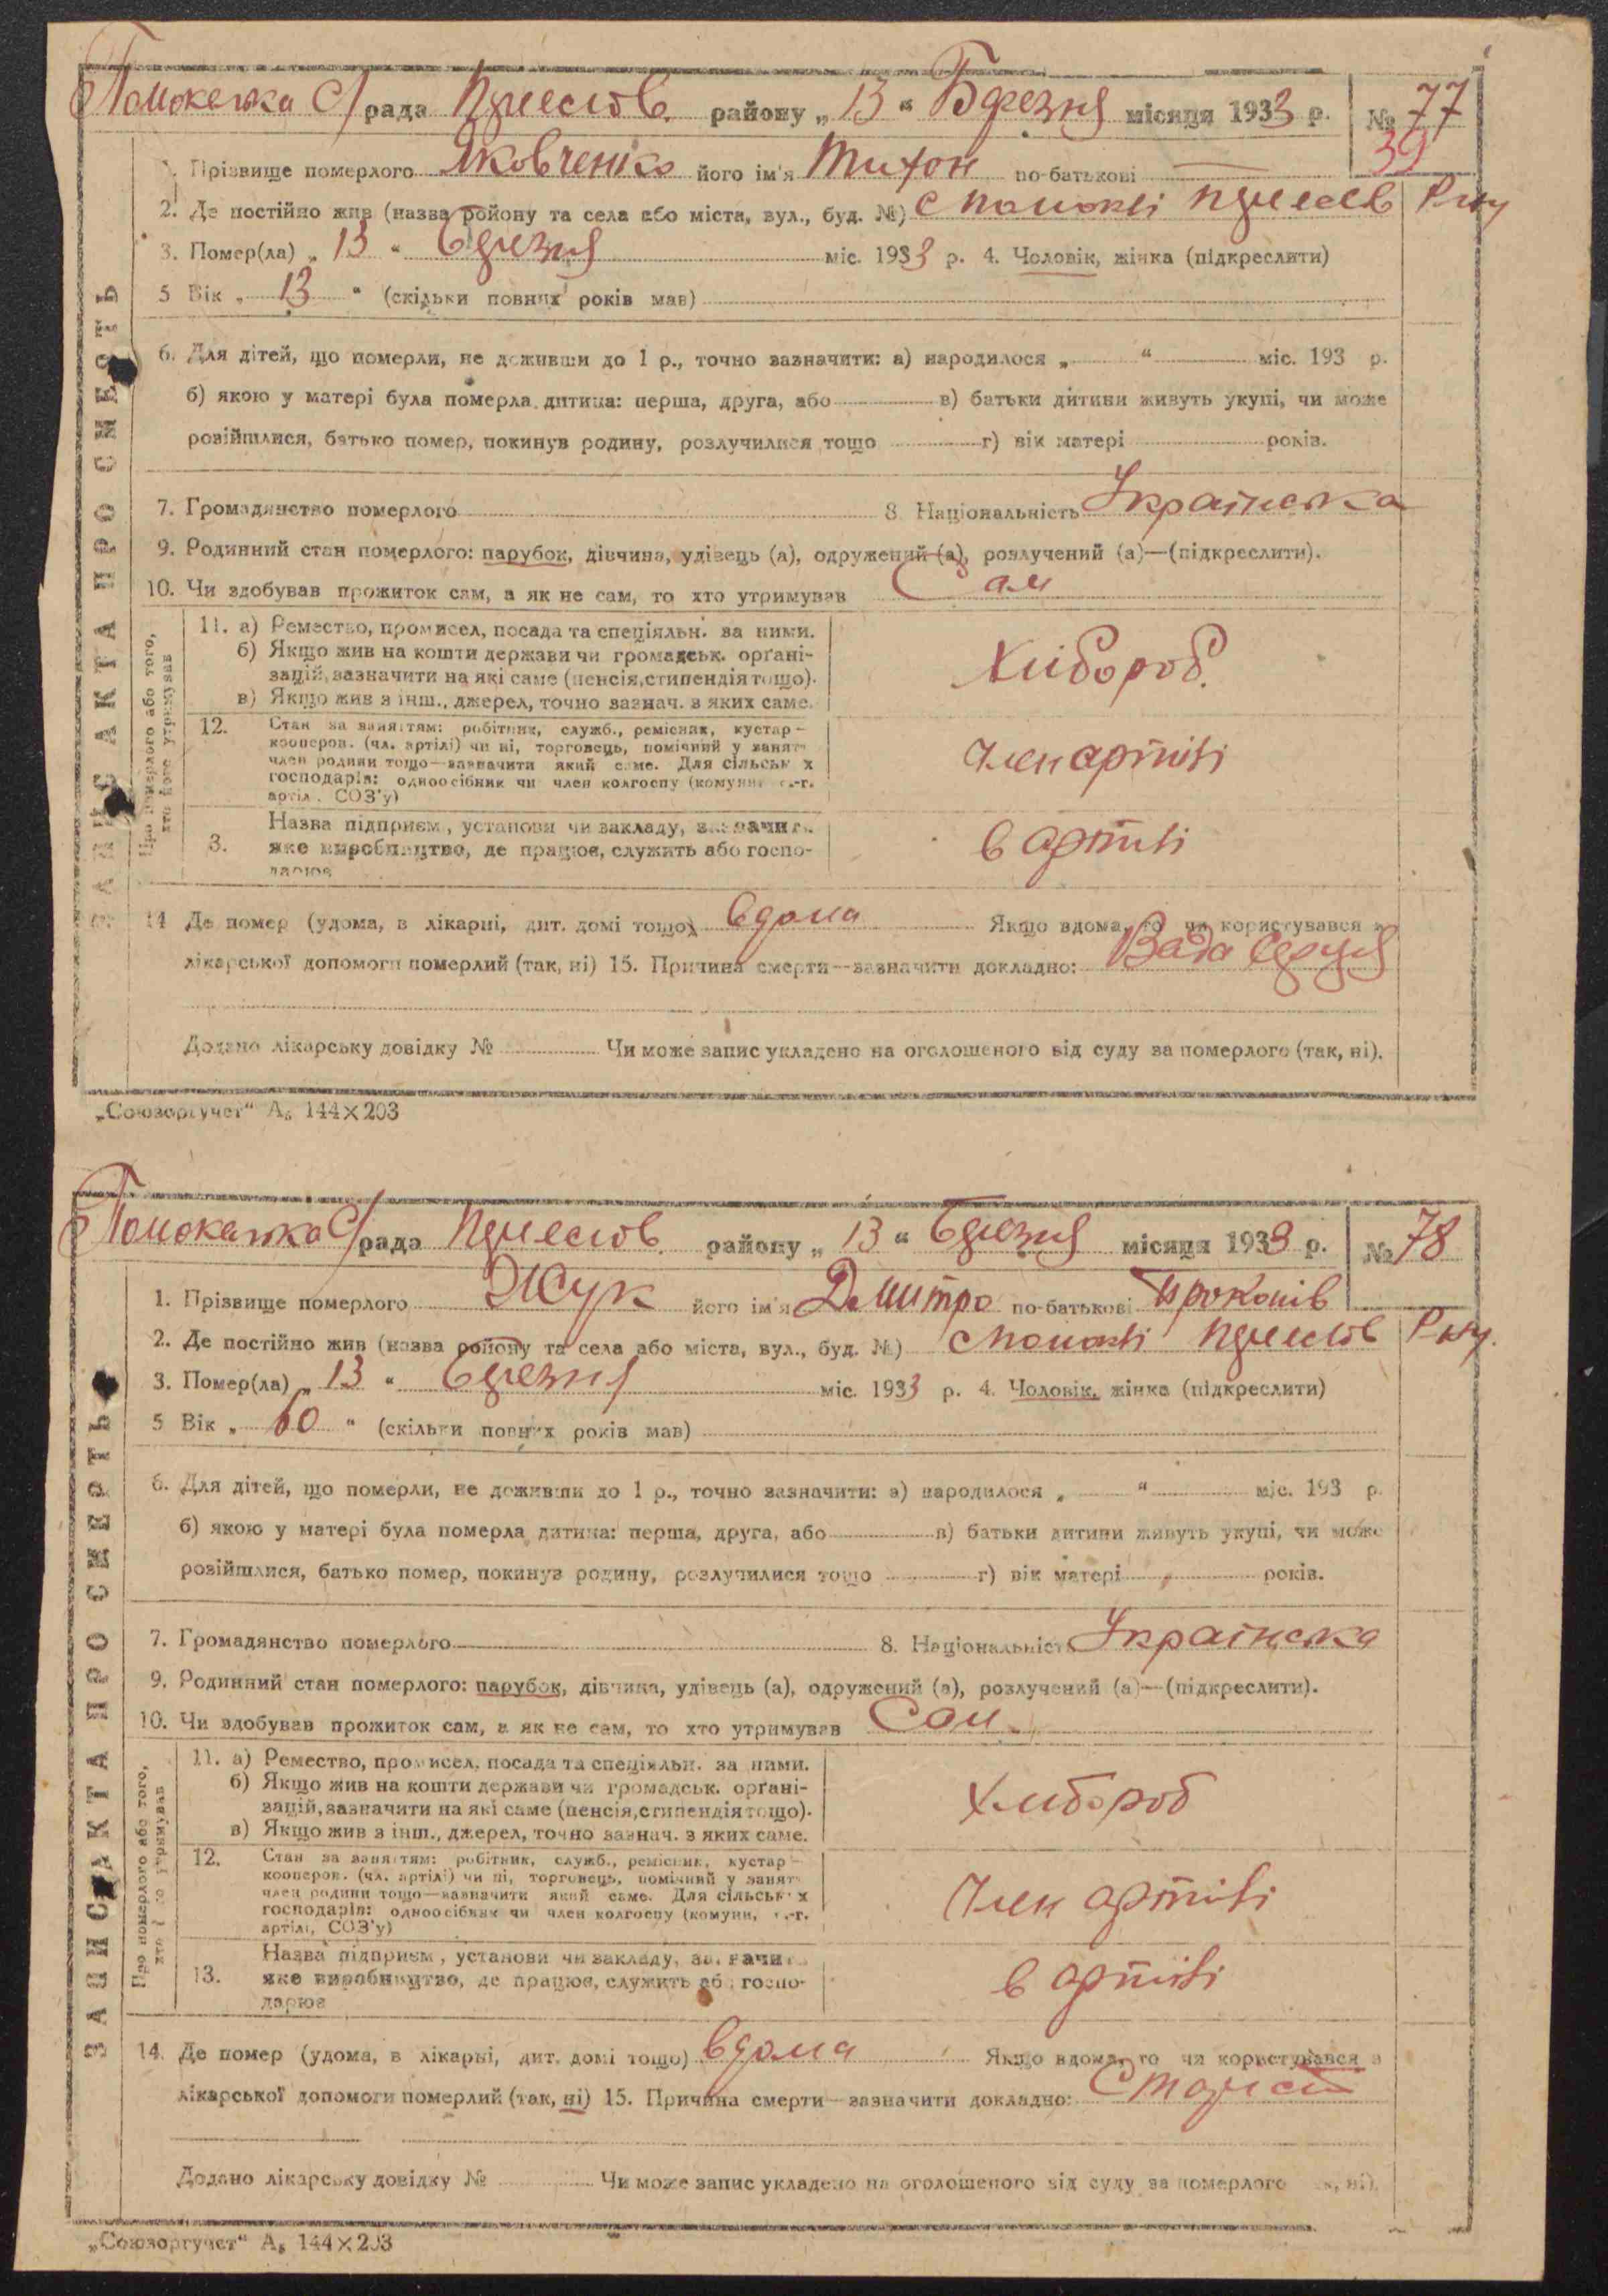 С/рада район у „ 13 “ Березня місяця 1933 р. № 77
39
1. Прізвище померлого Яковченко його ім'я Тихон по-батькові —
2. Де постійно жив (назва району та села або міста, вул., буд. №) с Р-ну
3. Помер(ла) „ 13 “ березня міс. 1933 р. 4. Чоловік, жінка (підкреслити)
5 Вік „ 13 “ (скільки повних років мав)
6. Для дітей, що померли, не доживши до 1 р., точно зазначити: а) народилося „ “ міс. 193 р.
б) якою у матері була померла дитина: перша, друга, або в) батьки дитини живуть укупі, чи може
розійшлися, батько помер, покинув родину, розлучилися тощо г) вік матері років.
7. Громадянство померлого 8 Національність Українська
9. Родинний стан померлого: парубок, дівчина, удівець (а), одружений (а), розлучений (а)—(підкреслити).
10. Чи здобував прожиток сам, а як не сам, то хто утримував Сам
ЗАПИС АКТА ПРО СМЕРТЬ
Про померлого або того,
хто його утримував
11. а) Ремество, промисел, посада та спеціяльн. за ними.
б) Якщо жив на кошти держави чи громадськ. органі-
зацій, зазначити на які саме (пенсія, стипендія тощо).
в) Якщо жив з інш., джерел, точно зазнач. з яких саме.
Хлібороб.
12. Стан за заняттям: робітник, служб., ремісник, кустар—
кооперов. (чл. артілі) чи ні, торговець, помічний у занят
член родини тощо—зазначити який саме. Для сільськ х
господарів: одноосібник чи член колгоспу (комуни с.-г.
артіл , СОЗ'у)
Член артілі
3. Назва підприєм , установи чи закладу, зазначить
яке виробництво, де працює, служить або госпо-
дарює
в артілі
14 Де помер (удома, в лікарні, дит. домі тощо) вдома Якщо вдома, то чи користувався з
лікарської допомоги померлий (так, ні) 15. Причина смерти—зазначити докладно: Вада серця
Додано лікарську довідку № Чи може запис укладено на оголошеного від суду за померлого (так, ні).
„Союзоргучет“ А₅ 144×203
С/рада району „ 13 “ березня місяця 1933 р. № 78
1. Прізвище померлого Жук його ім'я Дмитро по-батькові Прокопів
2. Де постійно жив (назва району та села або міста, вул., буд. №) с Р-ну.
3. Помер(ла) „ 13 “ березня міс. 1933 р. 4. Чоловік, жінка (підкреслити)
5 Вік „ 60 “ (скільки повних років мав)
6. Для дітей, що померли, не доживши до 1 р., точно зазначити: а) народилося „ “ міс. 193 р.
б) якою у матері була померла дитина: перша, друга, або в) батьки дитини живуть укупі, чи може
розійшлися, батько помер, покинув родину, розлучилися тощо г) вік матері років.
7. Громадянство померлого 8. Національність Українська
9. Родинний стан померлого: парубок, дівчина, удівець (а), одружений (а), розлучений (а)—(підкреслити).
10. Чи здобував прожиток сам, а як не сам, то хто утримував Сам.
ЗАПИС АКТА ПРО СМЕРТЬ
Про померлого або того,
хто його утримував
11. а) Ремество, промисел, посада та спеціяльн. за ними.
б) Якщо жив на кошти держави чи громадськ. органі-
зацій, зазначити на які саме (пенсія, стипендія тощо).
в) Якщо жив з інш., джерел, точно зазнач. з яких саме.
Хлібороб
12. Стан за заняттям: робітник, служб., ремісник, кустар—
кооперов. (чл. артілі) чи ні, торговець, помічний у занят
член родини тощо—зазначити який саме. Для сільськ х
господарів: одноосібник чи член колгоспу (комуни, с.-г.
артілі, СОЗ'у)
Член артілі
13. Назва підприєм , установи чи закладу, зазначи
яке виробництво, де працює, служить або госпо-
дарює
в артілі
14. Де помер (удома, в лікарні, дит. домі тощо) вдома Якщо вдома, то чи користувався з
лікарської допомоги померлий (так, ні) 15. Причина смерти—зазначити докладно: Старість
Додано лікарську довідку № Чи може запис укладено на оголошеного від суду за померлого к, ні).
„Союзоргучет“ А₅ 144×203